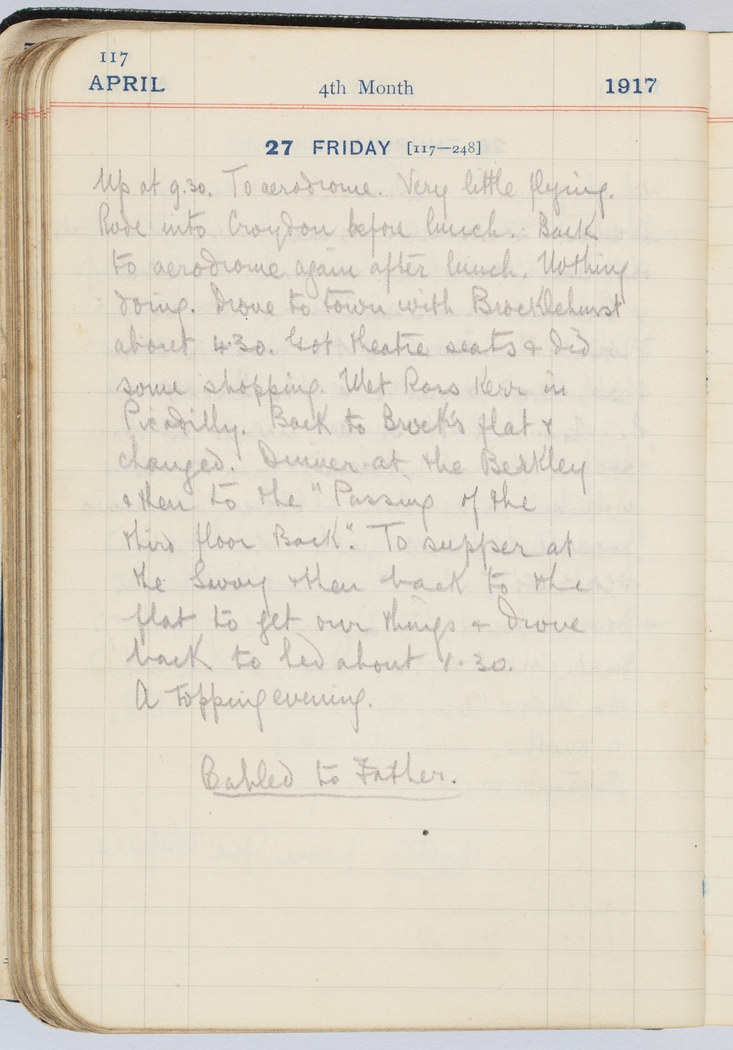 117
APRIL 4th Month 1917
27 FRIDAY [117—248]
Up at 9.30. To aerodrome. Very little flying.
Rode into Croydon before lunch. Back
to aerodrome again after lunch. Nothing
doing. Drove to town with Brocklehurst
about 4.30. Got theatre seats & did
some shopping. Met Ross Kerr in
Picadilly. Back to Brock's flat &
changed. Dinner at the Berkley
& then to the "Passing of the
third floor Back". To supper at
the Savoy & then back to the
flat to get our things & drove
back to bed about 1.30.
A topping evening.
Cabled to Father.